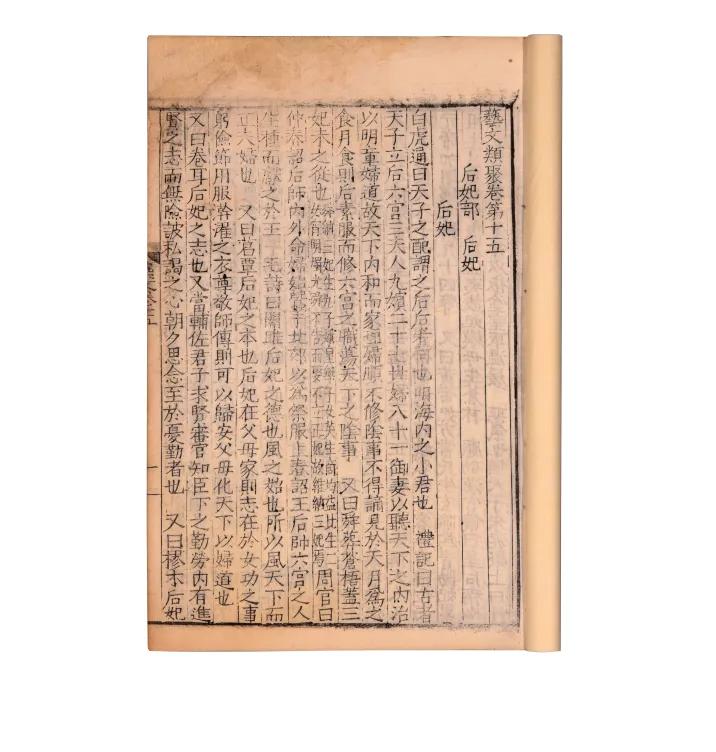 藝文類聚卷第十五
后妃部 后妃
后妃
白虎通曰天子之配謂之后后者何也明海內之小君也 禮記曰古者
天子立后六宮三夫人九嬪二十七世婦八十一御妻以聽天下之內治
以明章婦道故天下內和而家理婦順不修陰事不得謫見於天月為之
食月食則后素服而修六宮之職蕩天下之陰事 又曰舜葬蒼梧蓋三
妃未之從也 周官曰
仲春詔后帥內外命婦始蠶于北郊以為祭服上春詔王后帥六宮之人
生穜而獻之於王 毛詩曰關雎后妃之德也風之始也所以風天下而
正夫婦也 又曰葛覃后妃之本也后妃在父母家則志在於女功之事
躬儉節用服澣濯之衣尊敬師傅則可以歸安父母化天下以婦道也
又曰卷耳后妃之志也又當輔佐君子求賢審官知臣下之勤勞內有進
賢之志而無險詖私謁之心朝夕思念至於憂勤者也 又曰樛木后妃